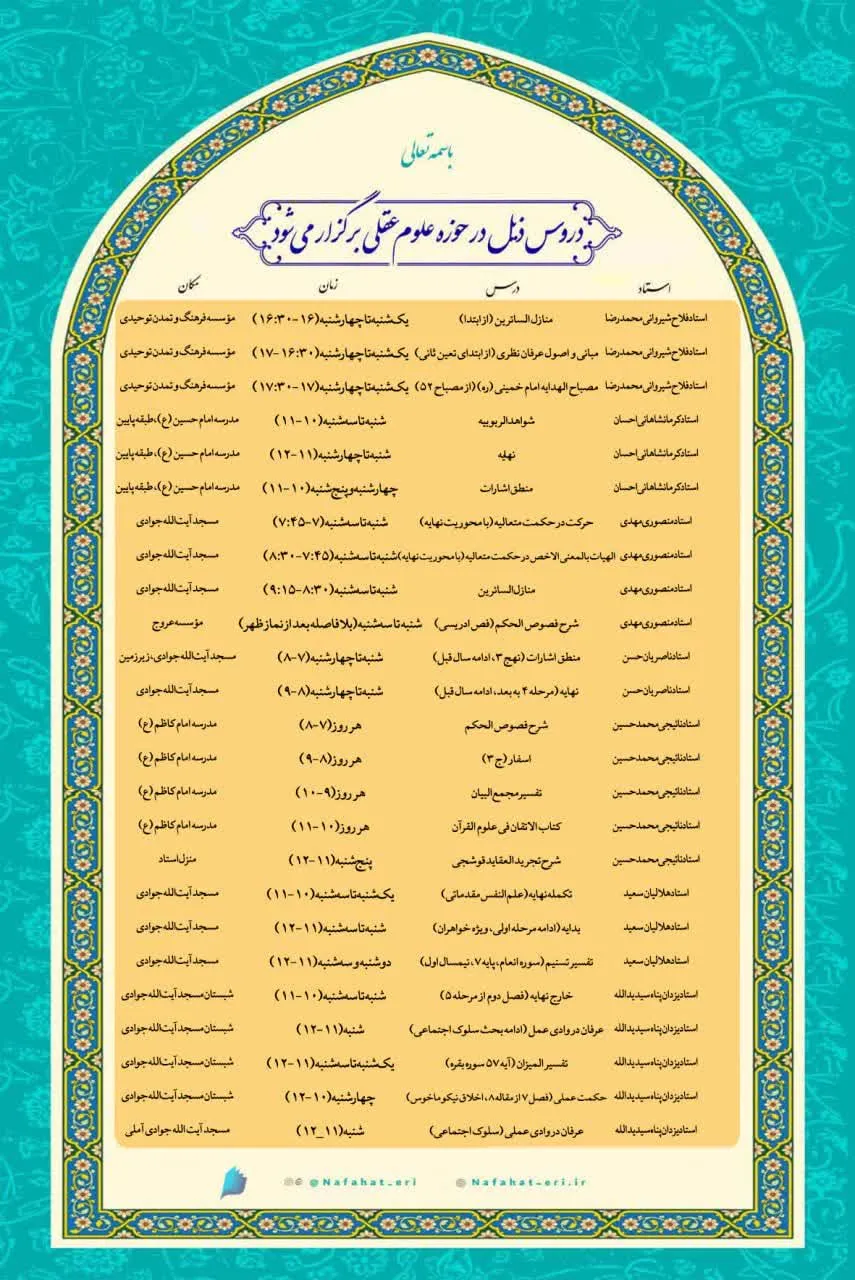 باسمه تعالی
دروس ذیل در حوزه علوم عقلی برگزار می شود
استاد درس زمان مکان
استاد فلاح شیروانی محمدرضا منازل السائرین (از ابتدا) یک‌شنبه تا چهارشنبه (۱۶-۱۶:۳۰) مؤسسه فرهنگ و تمدن توحیدی
استاد فلاح شیروانی محمدرضا مبانی و اصول عرفان نظری (از ابتدای تعین ثانی) یک‌شنبه تا چهارشنبه (۱۶:۳۰-۱۷) مؤسسه فرهنگ و تمدن توحیدی
استاد فلاح شیروانی محمدرضا مصباح الهدایه امام خمینی (ره) (از مصباح ۵۲) یک‌شنبه تا چهارشنبه (۱۷-۱۷:۳۰) مؤسسه فرهنگ و تمدن توحیدی
استاد کرمانشاهانی احسان شواهد الربوبیه شنبه تا سه‌شنبه (۱۰-۱۱) مدرسه امام حسین (ع)، طبقه پایین
استاد کرمانشاهانی احسان نهایه شنبه تا چهارشنبه (۱۱-۱۲) مدرسه امام حسین (ع)، طبقه پایین
استاد کرمانشاهانی احسان منطق اشارات چهارشنبه و پنج‌شنبه (۱۰-۱۱) مدرسه امام حسین (ع)، طبقه پایین
استاد منصوری مهدی حرکت در حکمت متعالیه (با محوریت نهایه) شنبه تا سه‌شنبه (۷-۷:۴۵) مسجد آیت‌الله جوادی
استاد منصوری مهدی الهیات بالمعنی الاخص در حکمت متعالیه (با محوریت نهایه) شنبه تا سه‌شنبه (۷:۴۵-۸:۳۰) مسجد آیت‌الله جوادی
استاد منصوری مهدی منازل السائرین شنبه تا سه‌شنبه (۸:۳۰-۹:۱۵) مسجد آیت‌الله جوادی
استاد منصوری مهدی شرح فصوص الحکم (فص ادریسی) شنبه تا سه‌شنبه (بلافاصله بعد از نماز ظهر) مؤسسه عروج
استاد ناصریان حسن منطق اشارات (نهج ۳، ادامه سال قبل) شنبه تا چهارشنبه (۷-۸) مسجد آیت‌الله جوادی، زیرزمین
استاد ناصریان حسن نهایه (مرحله ۴ به بعد، ادامه سال قبل) شنبه تا چهارشنبه (۸-۹) مسجد آیت‌الله جوادی
استاد نائیجی محمدحسین شرح فصوص الحکم هر روز (۷-۸) مدرسه امام کاظم (ع)
استاد نائیجی محمدحسین اسفار (ج ۳) هر روز (۸-۹) مدرسه امام کاظم (ع)
استاد نائیجی محمدحسین تفسیر مجمع البیان هر روز (۹-۱۰) مدرسه امام کاظم (ع)
استاد نائیجی محمدحسین کتاب الاتقان فی علوم القرآن هر روز (۱۰-۱۱) مدرسه امام کاظم (ع)
استاد نائیجی محمدحسین شرح تجرید العقاید قوشجی پنج‌شنبه (۱۱-۱۲) منزل استاد
استاد هلالیان سعید تکمله نهایه (علم النفس مقدماتی) یک‌شنبه تا سه‌شنبه (۱۰-۱۱) مسجد آیت‌الله جوادی
استاد هلالیان سعید بدایه (ادامه مرحله اولی، ویژه خواهران) شنبه تا سه‌شنبه (۱۱-۱۲) مسجد آیت‌الله جوادی
استاد هلالیان سعید تفسیر تسنیم (سوره انعام، پایه ۷، نیمسال اول) دوشنبه و سه‌شنبه (۱۱-۱۲) مسجد آیت‌الله جوادی
استاد یزدان پناه سید یدالله خارج نهایه (فصل دوم از مرحله ۵) شنبه تا سه‌شنبه (۱۰-۱۱) شبستان مسجد آیت‌الله جوادی
استاد یزدان پناه سید یدالله عرفان در وادی عمل (ادامه بحث سلوک اجتماعی) شنبه (۱۱-۱۲) شبستان مسجد آیت‌الله جوادی
استاد یزدان پناه سید یدالله تفسیر المیزان (آیه ۵۷ سوره بقره) یک‌شنبه تا سه‌شنبه (۱۱-۱۲) شبستان مسجد آیت‌الله جوادی
استاد یزدان پناه سید یدالله حکمت عملی (فصل ۷ از مقاله ۸، اخلاق نیکوماخوس) چهارشنبه (۱۰-۱۲) شبستان مسجد آیت‌الله جوادی
استاد یزدان پناه سید یدالله عرفان در وادی عملی (سلوک اجتماعی) شنبه (۱۱_۱۲) مسجد آیت الله جوادی آملی
@Nafahat_eri Nafahat-eri.ir